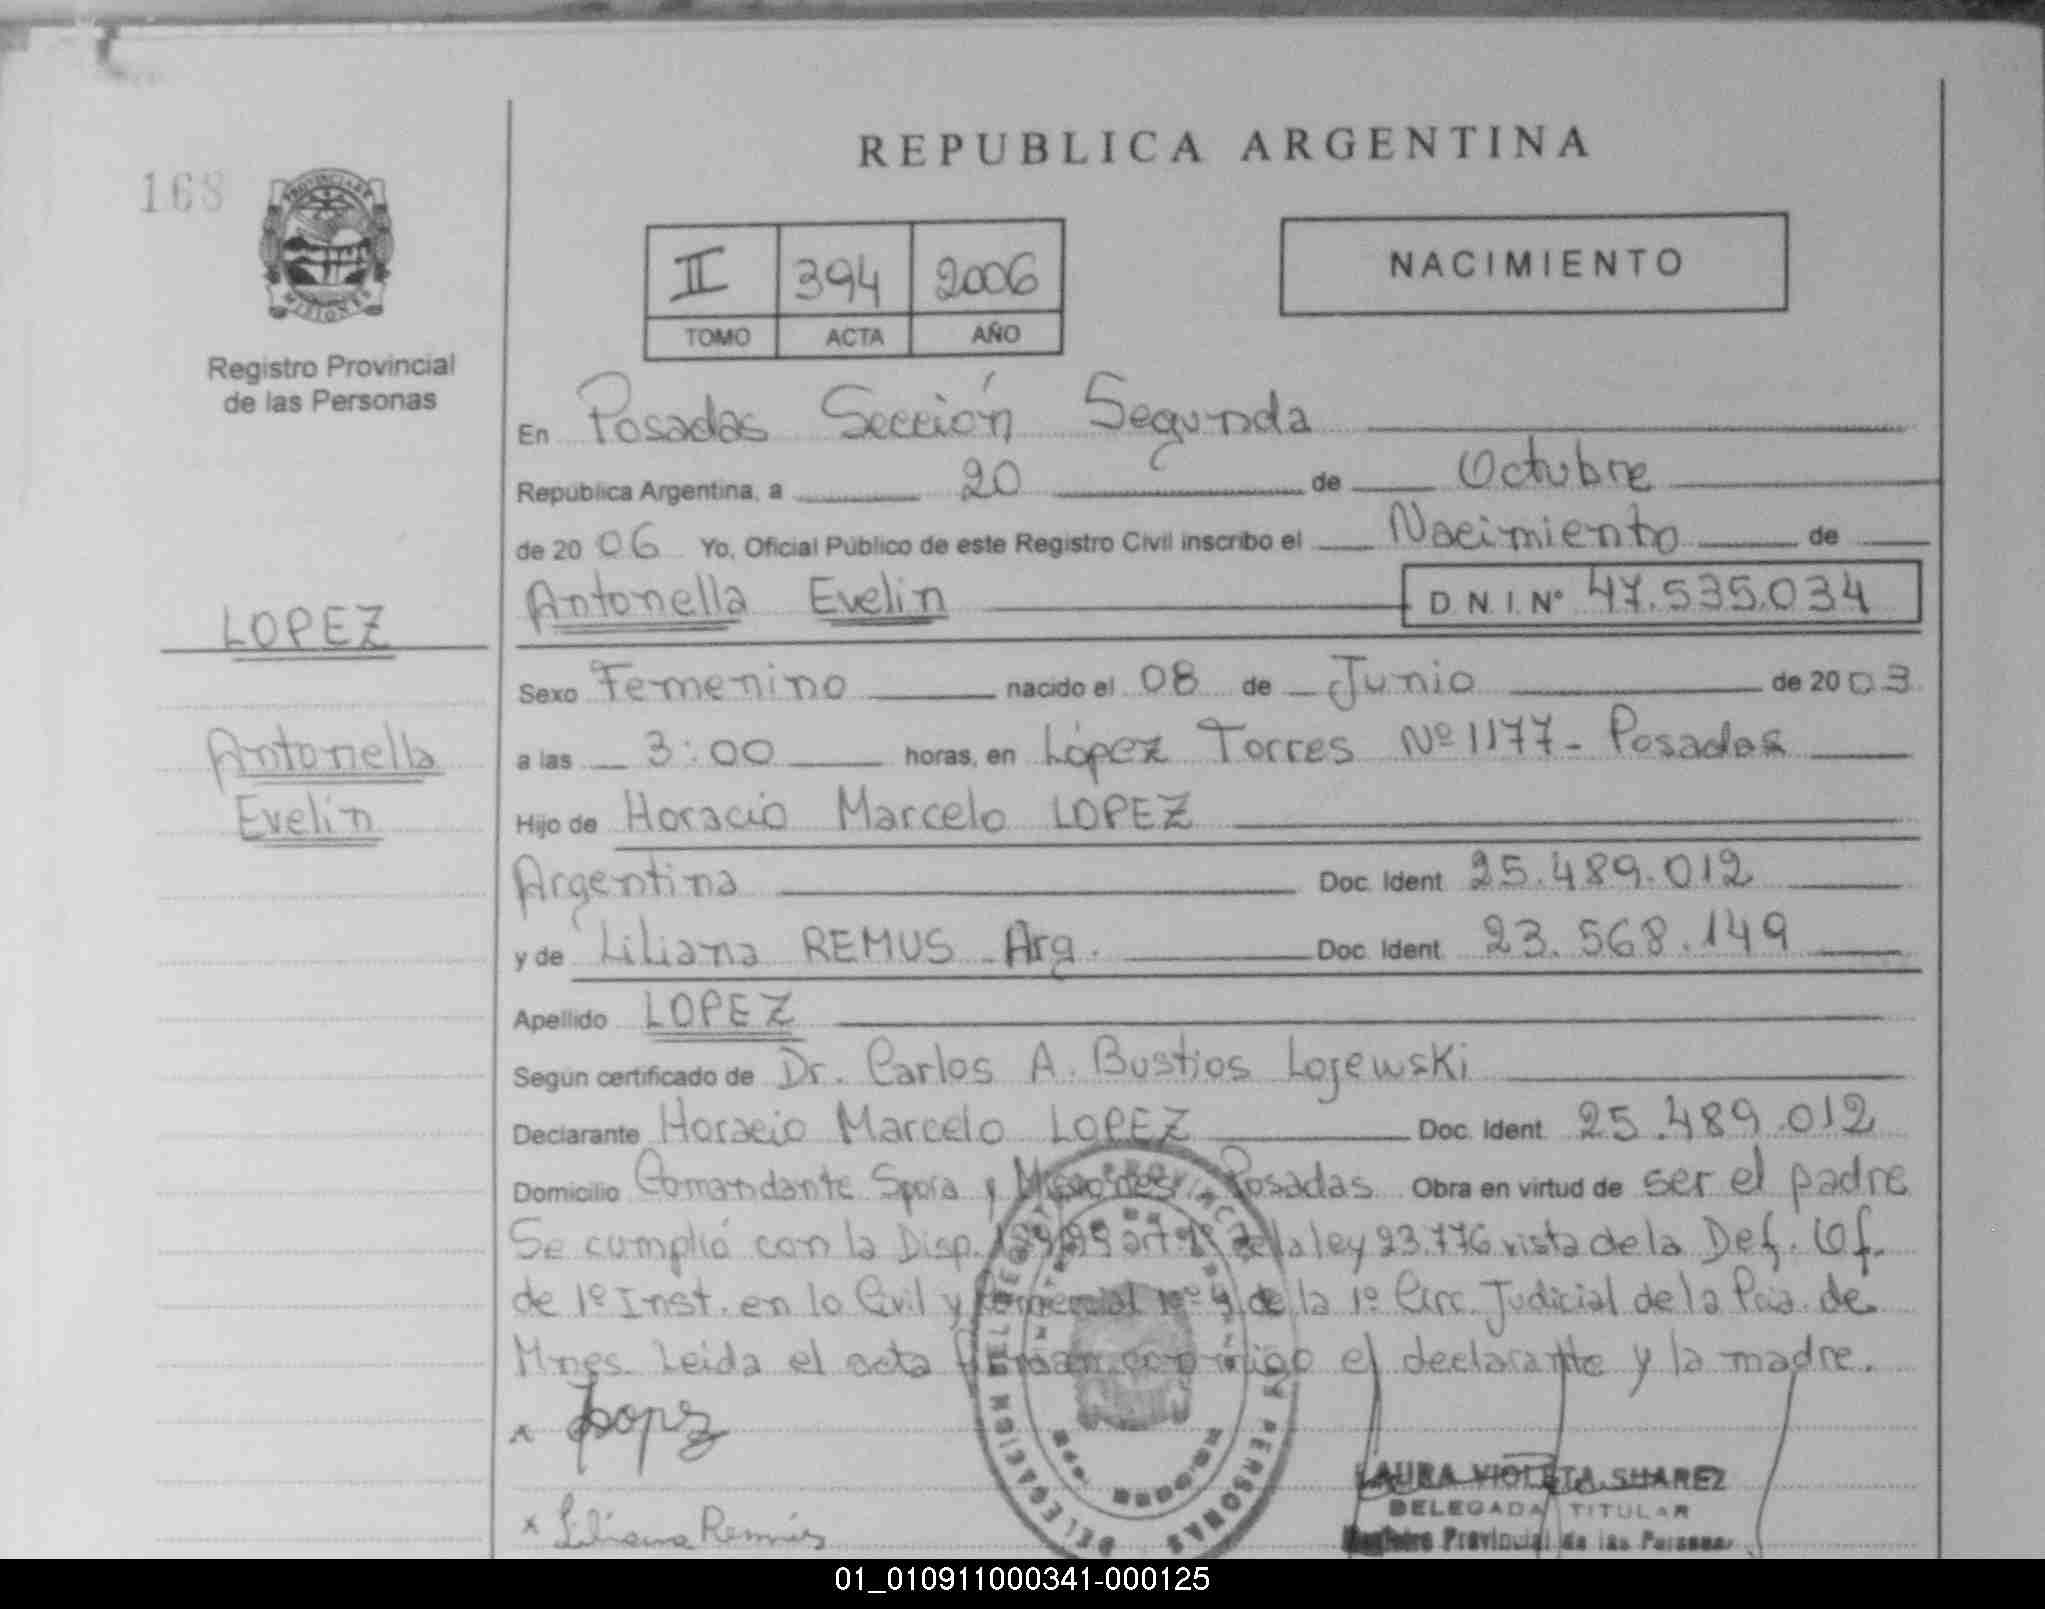 REPUBLICA ARGENTINA
168
PROVINCIA DE
MISIONES
Registro Provincial
de las Personas
II 394 2006
TOMO ACTA AÑO
NACIMIENTO
En Posadas Sección Segunda
República Argentina, a 20 de Octubre
de 2006 Yo, Oficial Público de este Registro Civil inscribo el Nacimiento de
Antonella Evelin D.N.I. Nº 47.535.034
LOPEZ
Antonella
Evelin
Sexo Femenino nacido el 08 de Junio de 2003
a las 3:00 horas, en López Torres Nº 1177 - Posadas
Hijo de Horacio Marcelo LOPEZ
Argentina Doc. Ident. 25.489.012
y de Liliana REMUS Arg. Doc. Ident. 23.568.149
Apellido LOPEZ
Según certificado de Dr. Carlos A. Bustios Lojewski
Declarante Horacio Marcelo LOPEZ Doc. Ident. 25.489.012
Domicilio Comandante Spora y Posadas Obra en virtud de ser el padre
Se cumplió con la Disp. art. de la ley 23.776 vista de la Def. Of.
de 1º Inst. en lo Civil y Comercial nº 4 de la 1º Circ. Judicial de la Pcia. de
Mnes. Leida el acta firman conmigo el declarante y la madre.
x Lopez
x Liliana Remus
DELEGACION PERSONAS
LAURA VIOLETA SUAREZ
DELEGADA TITULAR
Registro Provincial de las Personas
01_010911000341-000125